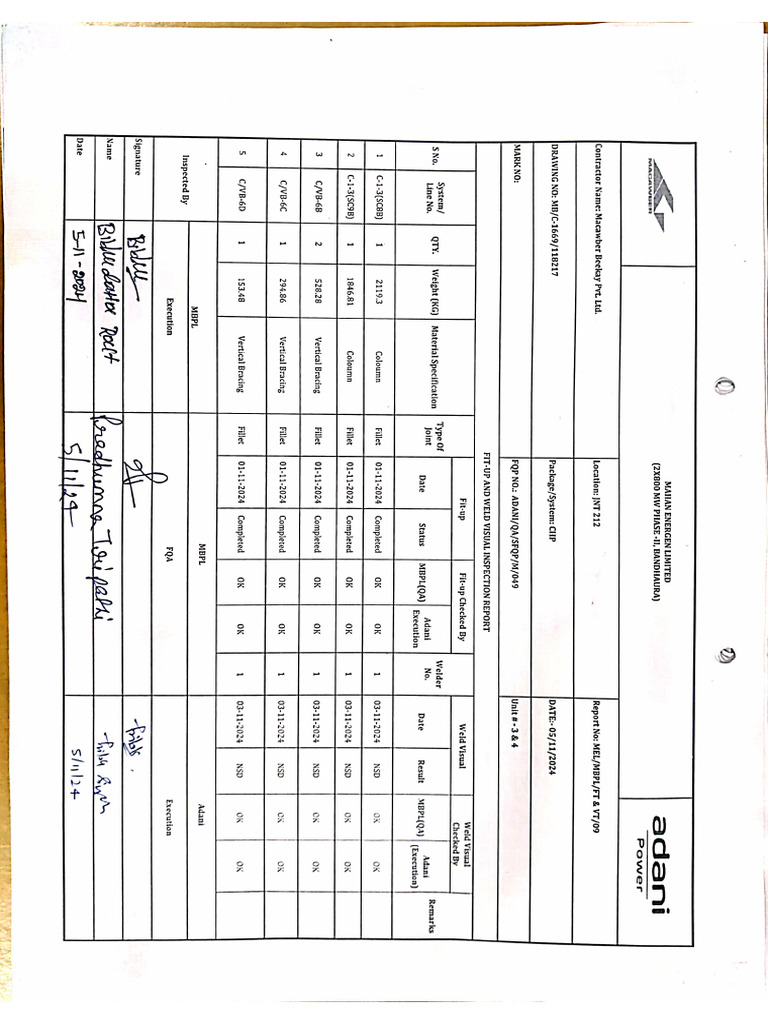 MACAWBER
MAHAN ENERGEN LIMITED
(2X800 MW PHASE -II, BANDHAURA)
adani
Power
Contractor Name: Macawber Beekay Pvt. Ltd. Location: JNT 212 Report No: MEL/MBPL/FT & VT/09
DRAWING NO: MB/C-1669/118217 Package/System: CHP DATE:- 05/11/2024
MARK NO: FQP NO.: ADANI/QA/SFQP/M/049 Unit # - 3 & 4
FIT-UP AND WELD VISUAL INSPECTION REPORT
S No. System/ Line No. QTY. Weight (KG) Material Specification Type Of Joint Fit-up Fit-up Checked By Welder No. Weld Visual Weld Visual Checked By Remarks
Date Status MBPL(QA) Adani Execution Date Result MBPL(QA) Adani (Execution)
1 C-1-3(SC8B) 1 2119.3 Coloumn Fillet 01-11-2024 Completed OK OK 1 03-11-2024 NSD OK OK
2 C-1-3(SC9B) 1 1846.81 Coloumn Fillet 01-11-2024 Completed OK OK 1 03-11-2024 NSD OK OK
3 C/VB-6B 2 528.28 Vertical Bracing Fillet 01-11-2024 Completed OK OK 1 03-11-2024 NSD OK OK
4 C/VB-6C 1 294.86 Vertical Bracing Fillet 01-11-2024 Completed OK OK 1 03-11-2024 NSD OK OK
5 C/VB-6D 1 153.48 Vertical Bracing Fillet 01-11-2024 Completed OK OK 1 03-11-2024 NSD OK OK
Inspected By MBPL MBPL Adani
Execution FQA Execution
Signature
Name Pradhumna Tripathi
Date 5-11-2024 5/11/24 5/11/24